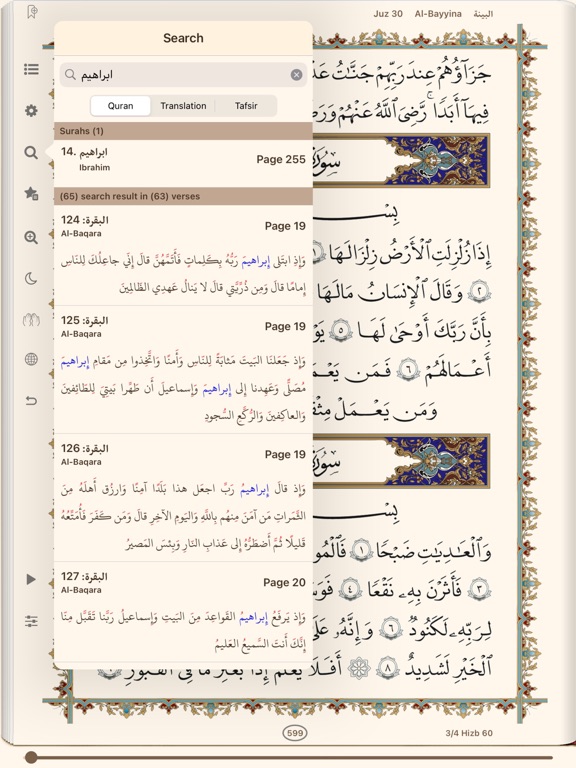 Juz 30 Al-Bayyina البينة
Search
ابراهيم
Quran Translation Tafsir
Surahs (1)
14. ابراهيم
Ibrahim
Page 255
(65) search result in (63) verses
البقرة: 124
Al-Baqara
Page 19
وَإِذِ ابتَلى إِبراهيمَ رَبُّهُ بِكَلِماتٍ فَأَتَمَّهُنَّ قالَ إِنّي جاعِلُكَ لِلنّاسِ
إِمامًا قالَ وَمِن ذُرِّيَّتي قالَ لا يَنالُ عَهدِي الظّالِمينَ
البقرة: 125
Al-Baqara
Page 19
وَإِذ جَعَلنَا البَيتَ مَثابَةً لِلنّاسِ وَأَمنًا وَاتَّخِذوا مِن مَقامِ إِبراهيمَ
مُصَلًّى وَعَهِدنا إِلى إِبراهيمَ وَإِسماعيلَ أَن طَهِّرا بَيتِيَ لِلطّائِفينَ
وَالعاكِفينَ وَالرُّكَّعِ السُّجودِ
البقرة: 126
Al-Baqara
Page 19
وَإِذ قالَ إِبراهيمُ رَبِّ اجعَل هذا بَلَدًا آمِنًا وَارزُق أَهلَهُ مِنَ
الثَّمَراتِ مَن آمَنَ مِنهُم بِاللَّهِ وَاليَومِ الآخِرِ قالَ وَمَن كَفَرَ فَأُمَتِّعُهُ
قَليلًا ثُمَّ أَضطَرُّهُ إِلى عَذابِ النّارِ وَبِئسَ المَصيرُ
البقرة: 127
Al-Baqara
Page 20
وَإِذ يَرفَعُ إِبراهيمُ القَواعِدَ مِنَ البَيتِ وَإِسماعيلُ رَبَّنا تَقَبَّل مِنّا
إِنَّكَ أَنتَ السَّميعُ العَليمُ
جَزَآؤُهُمْ عِندَ رَبِّهِمْ جَنَّٰتُ
فِيهَآ أَبَدًا ۖ رَّضِىَ ٱللَّهُ عَنْهُمْ
إِذَا زُلْزِلَتِ ٱلْأَرْضُ زِلْزَالَهَا
٢ وَقَالَ ٱلْإِنسَٰنُ مَا لَهَا
بِأَنَّ رَبَّكَ أَوْحَىٰ لَهَا ٥
أَعْمَٰلَهُمْ ٦ فَمَن
وَمَن يَعْمَلْ
وَٱلْعَٰدِيَٰتِ ضَبْحًا ١
٣ فَأَثَرْنَ بِهِۦ نَقْعًا ٤
لِرَبِّهِۦ لَكَنُودٌ ٦ وَإِنَّهُۥ
ٱلْخَيْرِ لَشَدِيدٌ ٨ أَفَلَا يَعْلَمُ إِذَا بُعْثِرَ مَا فِى ٱلْقُبُورِ
599
3/4 Hizb 60